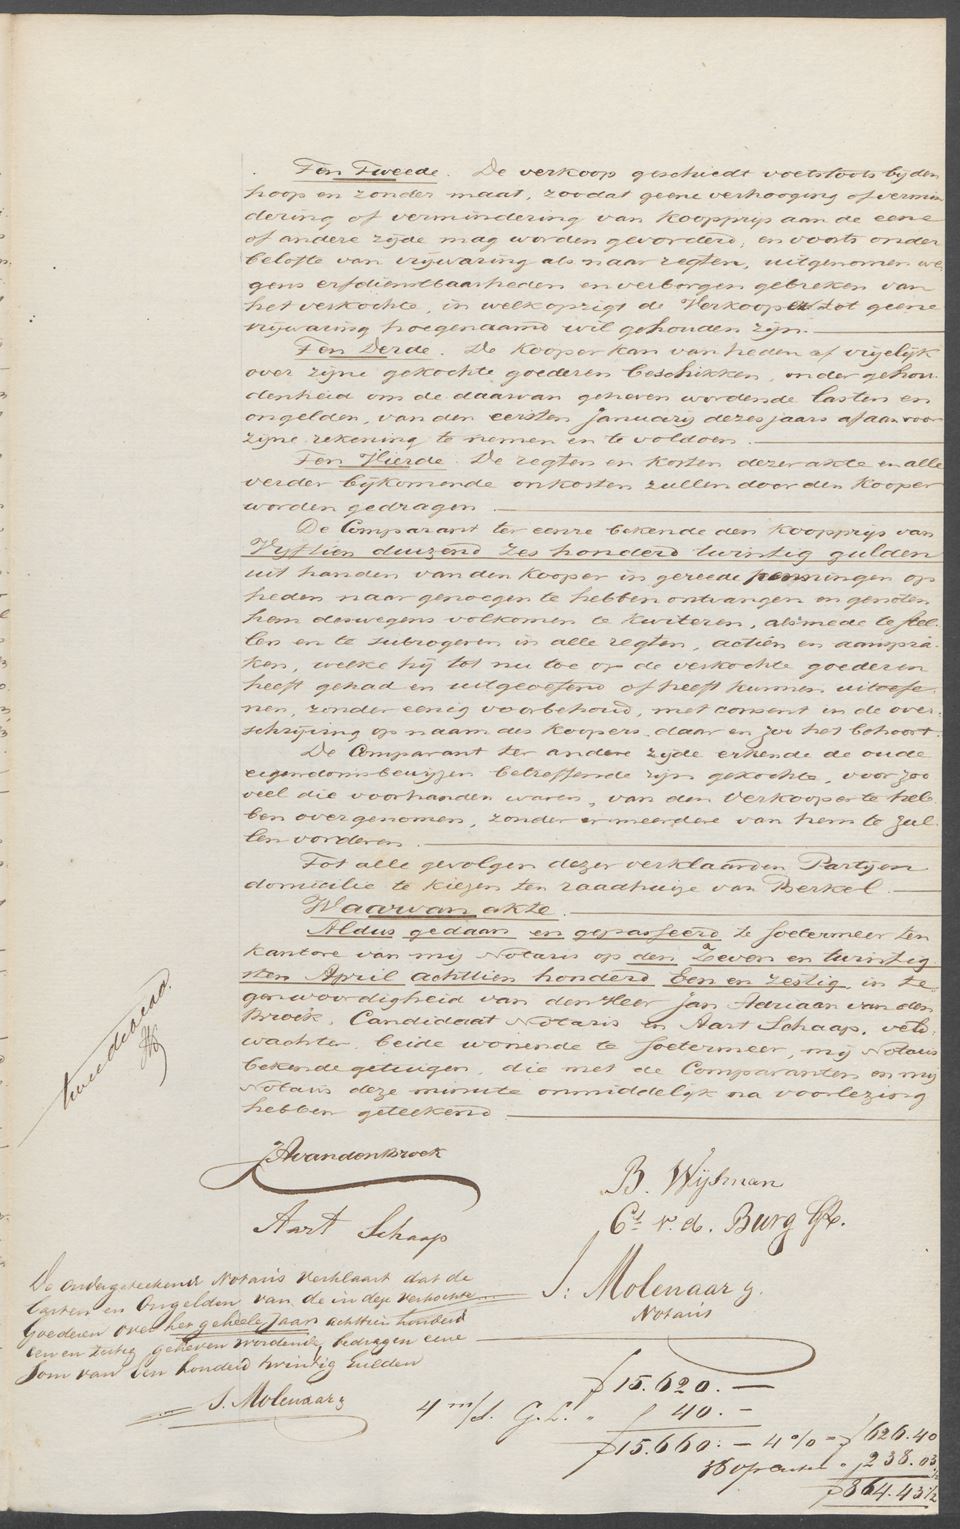 Ten Tweede. De verkoop geschiedt voetstoots bij den
hoop en zonder maat, zoodat geene verhooging of vermin
dering of vermindering van koopprijs aan de eene
of andere zijde mag worden gevorderd, en voorts onder
belofte van vrijwaring als naar regten, uitgenomen we
gens erfdienstbaarheden en verborgen gebreken van
het verkochte, in welk opzigt de Verkooper tot geene
vrijwaring hoegenaamd wil gehouden zijn.
Ten Derde. De Kooper kan van heden af vrijelijk
over zijne gekochte goederen beschikken, onder gehou-
denheid om de daarvan geheven wordende lasten en
ongelden, van den eersten Januarij dezes jaars af aan voor
zijne rekening te nemen en te voldoen.
Ten Vierde. De regten en kosten dezer akte en alle
verder bijkomende onkosten zullen door den Kooper
worden gedragen
De Comparant ter eenre bekende den koopprijs van
Vijftien duizend zes honderd twintig gulden
uit handen van den Kooper in gereede penningen op
heden naar genoegen te hebben ontvangen en genoten
hem deswegens volkomen te kwiteren, alsmede te stel-
len en te subrogeren in alle regten, actiën en aanspra-
ken, welke hij tot nu toe op de verkochte goederen
heeft gehad en uitgeoefend of heeft kunnen uitoefe-
nen, zonder eenig voorbehoud, met consent in de over-
schrijving op naam des Koopers, daar en zoo het behoort.
De Comparant ter andere zijde erkende de oude
eigendomsbewijzen betreffende zijn gekochte, voor zoo
veel die voorhanden waren, van den Verkooper te heb-
ben overgenomen, zonder er meerdere van hem te zul-
len vorderen.
Tot alle gevolgen dezer verklaarden Partijen
domicilie te kiezen ten raadhuize van Berkel.
Waarvan akte.
Aldus gedaan en gepasseerd te Soetermeer ten
kantore van mij Notaris op den Zeven en twintig
sten April achttien honderd Een en zestig, in te-
genwoordigheid van den Heer Jan Adriaan van den
Broek, Candidaat Notaris en Aart Schaap, veld-
wachter, beide wonende te Soetermeer, mij Notaris
bekende getuigen, die met de Comparanten en mij
Notaris deze minute onmiddelijk na voorlezing
hebben geteekend
JAvandenBroek
B. Wijsman
Ct v. d. Burg Gz.
Aart Schaap
S: Molenaar
Notaris
De ondergeteekende Notaris verklaart dat de
Lasten en Ongelden van de in deze verkochte
Goederen over het geheele jaar achttien honderd
een en zestig geheven wordende, bedragen eene
Som van Een honderd twintig Gulden
S. Molenaar
ƒ 15.620.—
4 m/s. G.L. " ƒ 40.—
ƒ 15.660.— 4% = ƒ 626.40
38 opcenten " ƒ 238.03½
ƒ 864.43½